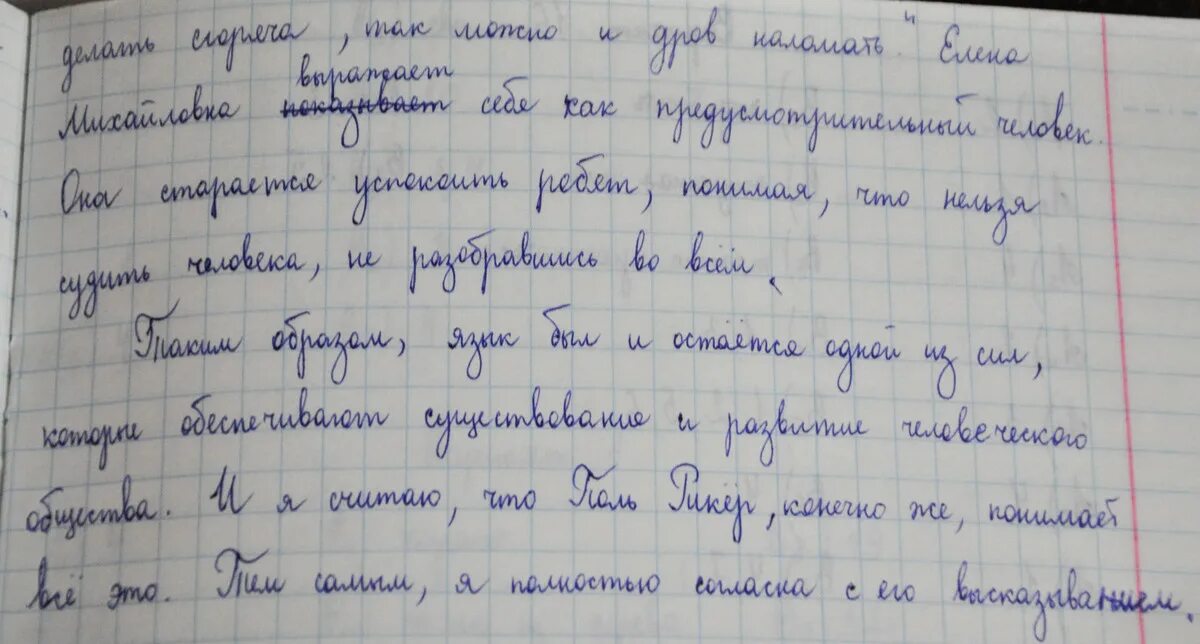 делать сгоряча, так можно и дров наломать" Елена
выражает
Михайловна показывает себе как предусмотрительный человек.
Она старается успокоить ребят, понимая, что нельзя
судить человека, не разобравшись во всём.
Таким образом, язык был и остаётся одной из сил,
которые обеспечивают существование и развитие человеческого
общества. И я считаю, что Поль Рикёр, конечно же, понимает
всё это. Тем самым, я полностью согласна с его высказыванием.